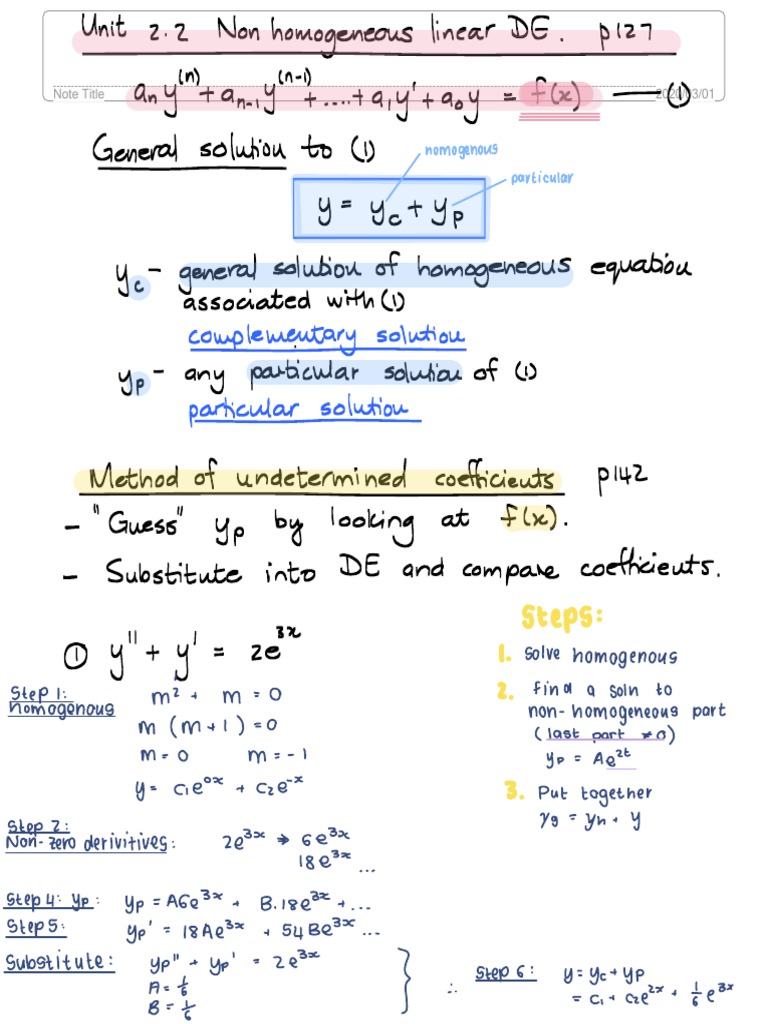 Unit 2.2 Non homogeneous linear DE. p127
Note Title
2020/03/01
aₙy⁽ⁿ⁾ + aₙ₋₁y⁽ⁿ⁻¹⁾ + .... + a₁y' + a₀y = f(x) —— (1)
General solution to (1)
nomogenous
particular
y = y_c + y_p
y_c - general solution of homogeneous equation
associated with (1)
complementary solution
y_p - any particular solution of (1)
particular solution
Method of undetermined coefficients p142
- "Guess" y_p by looking at f(x).
- Substitute into DE and compare coefficients.
① y'' + y' = 2e^{3x}
Step 1:
nomogenous
m² + m = 0
m (m+1) = 0
m = 0 m = -1
y = c₁e^{0x} + c₂e^{-x}
Steps:
1. solve homogenous
2. find a soln to
non-homogeneous part
(last part ≠ 0)
y_p = Ae^{2t}
3. Put together
y_g = y_n + y
Step 2:
Non-zero derivitives: 2e^{3x} → 6e^{3x}
18e^{3x} ...
Step 4: y_p: y_p = A6e^{3x} + B.18e^{3x} + ...
Step 5: y_p' = 18Ae^{3x} + 54Be^{3x} ...
Substitute: y_p'' + y_p' = 2e^{3x}
A = 1/6
B = 1/6
∴ Step 6: y = y_c + y_p
= c₁ + c₂e^{2x} + 1/6 e^{3x}